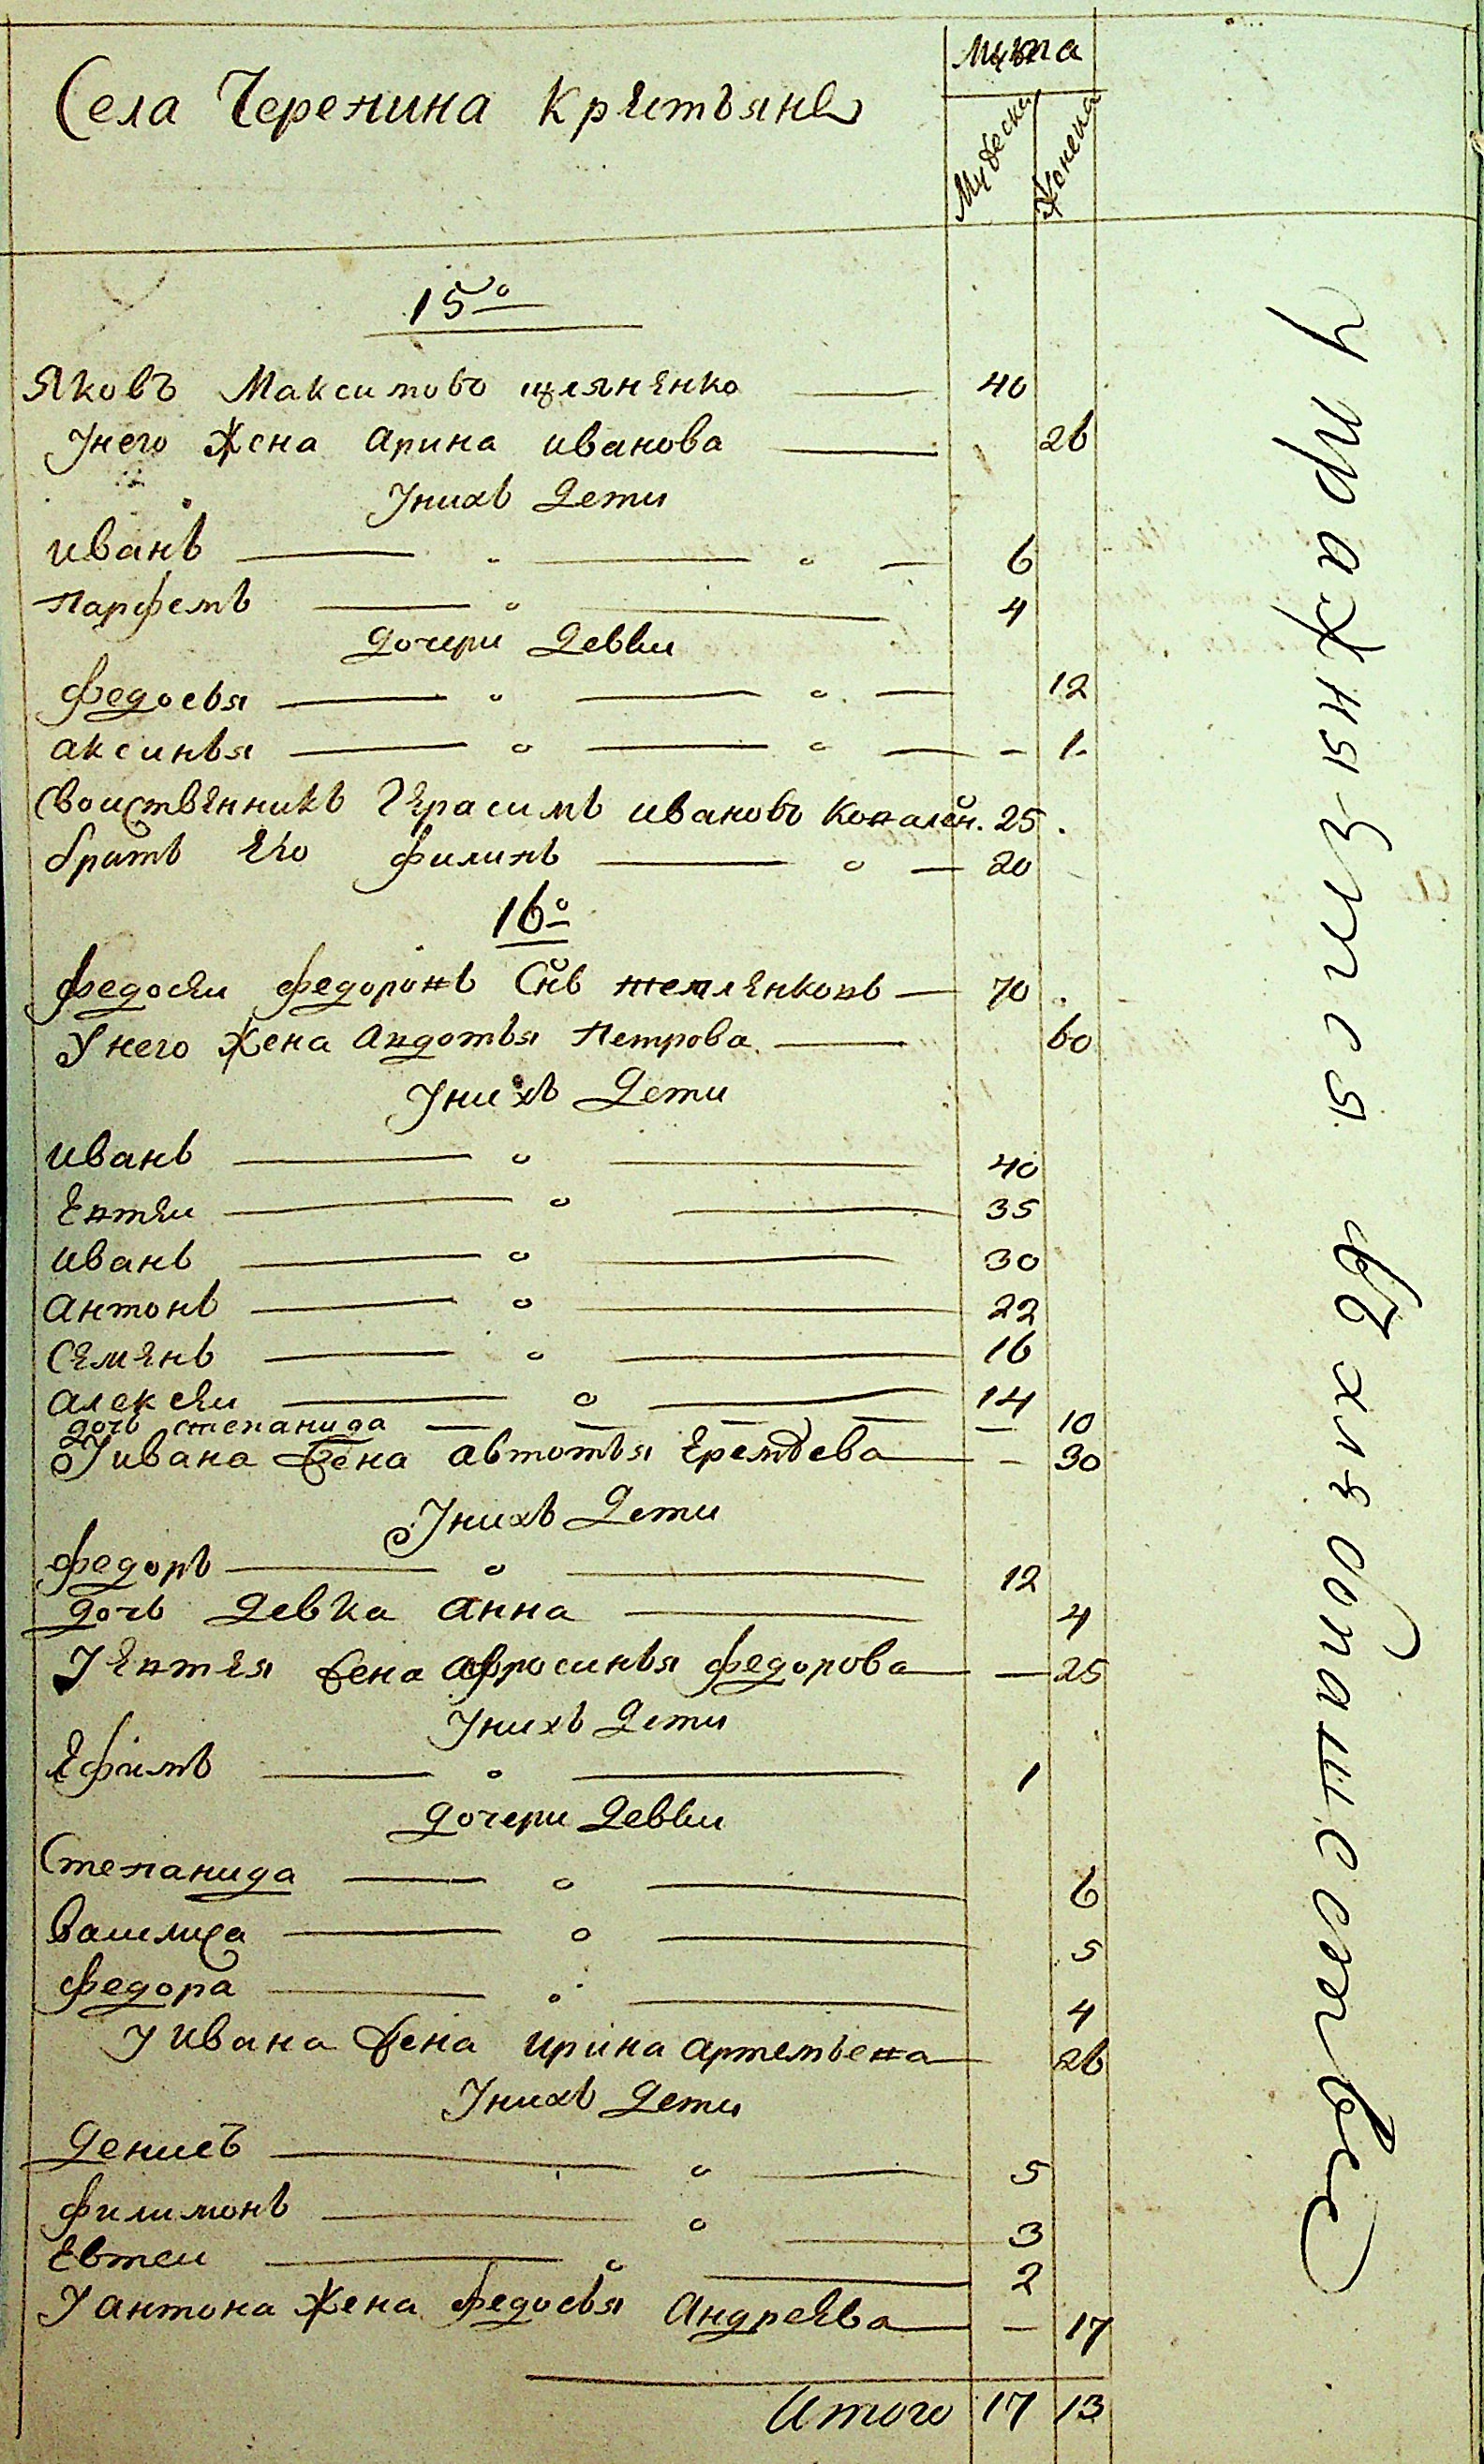 Села Черенина крестьяне
Мужеска
Женска
15о
Яковъ Максимовъ 40
Унего жена Арина иванова 26
Унихъ дети
иванъ 6
парфемъ 4
дочери девки
федосья 12
аксинья 1
Своиственникъ Герасимъ ивановъ 25
братъ его филипъ 20
16о
федосеи федоровъ Снъ 70
Унего жена авдотья петрова 60
Унихъ дети
иванъ 40
Евтеи 35
иванъ 30
антонъ 22
Семенъ 16
алексеи 14
дочь степанида 10
Уивана жена автотья Еремѣева 30
Унихъ дети
федоръ 12
дочь девка анна 4
У Евтея жена афросинья федорова 25
Унихъ дети
Ефимъ 1
дочери девки
Степанида 6
василиса 5
федора 4
У ивана жена ирина артемьева 26
Унихъ дети
денисъ 5
филимонъ 3
Евтеи 2
У антона жена федосья Андреева 17
Итого 17 13